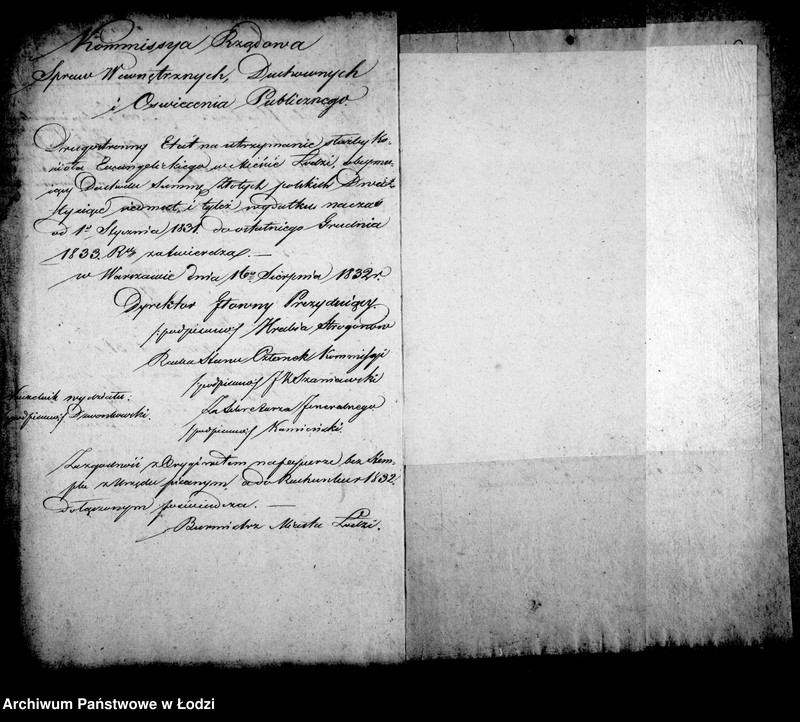 Kommissya Rządowa
Spraw Wewnętrznych, Duchownych
i Oswiecenia Publicznego
Drugostronny Etat na utrzymanie służby Ko-
scioła Ewangelickiego w Mieście Łodzi, obejmu-
iący Dochodu Summę Złotych polskich Dwa
tysiące siedmset i tyleż wydatku na czas
od 1o Stycznia 1831. do ostatniego Grudnia
1833. Rku zatwierdza. —
w Warszawie dnia 16go Sierpnia 1832 r.
Dyrektor Główny Prezyduiący.
/:podpisano:/ Hrabia Strogonow
Radca Stanu Członek Kommissyi
/podpisano:/ J. K. Szaniawski
Naczelnik wydziału:
/podpisano:/ Dzwonkowski.
Za Sekretarza Jeneralnego
/podpisano:/ Kamiński.
Za zgodność z Oryginałem na papierze bez Stem-
plu z Urzędu pisanym, a do Rachunku r 1832.
dołączonym poświadcza. —
Burmistrz Miasta Łodzi.
Archiwum Państwowe w Łodzi